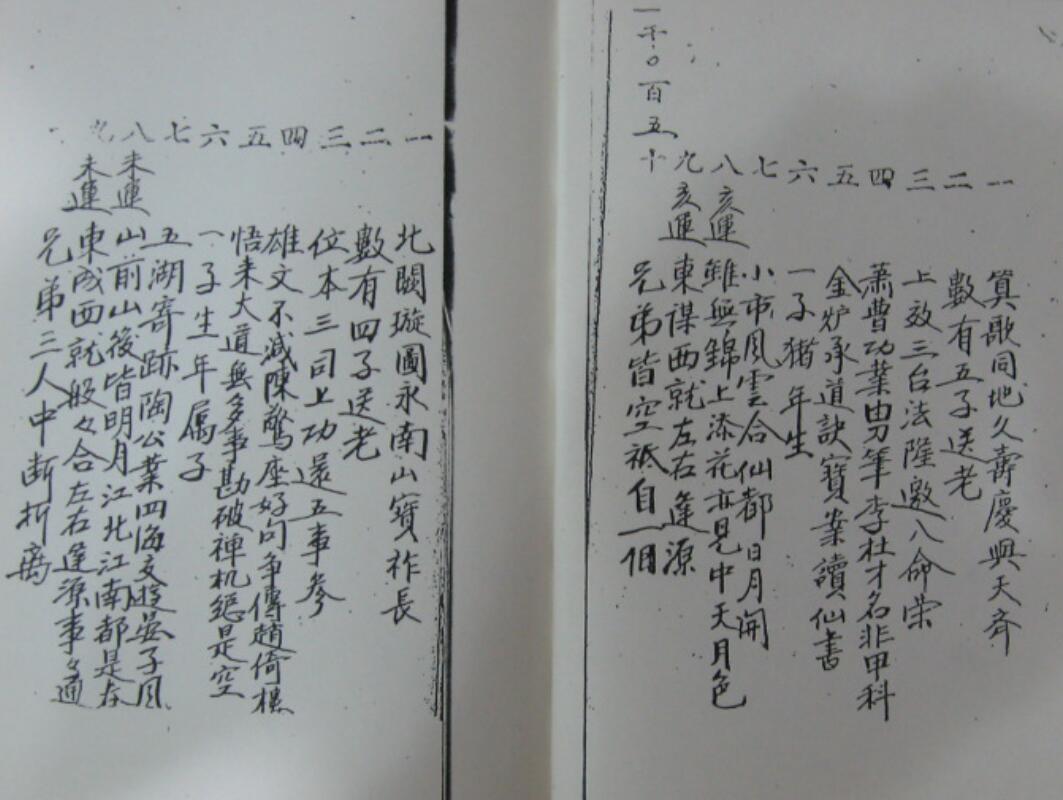 一千〇百五
一 箕歌同地久壽慶與天齊
二 數有五子送老
三 上效三台法隆邀八命荣
四 蕭曹功業由刀筆李杜才名非甲科
五 金炉承道訣寶案讀仙書
六 一子猪年生
七 小市風雲合仙都日月開
八 亥運 雖無錦上添花亦見中天月色
九 亥運 東谋西就左右逢源
十 兄弟皆空祗自一個
一 北闕璇圖永南山寶祚長
二 數有四子送老
三 位本三司上功還五事參
四 雄文不減陳驚座好句争傳趙倚樓
五 悟来大道無多事勘破禅机總是空
六 一子生年属子
七 五湖寄跡陶公業四海交遊晏子風
八 未運 山前山後皆明月江北江南都是春
九 未運 東成西就般々合左右逢源事々通
兄弟三人中断折